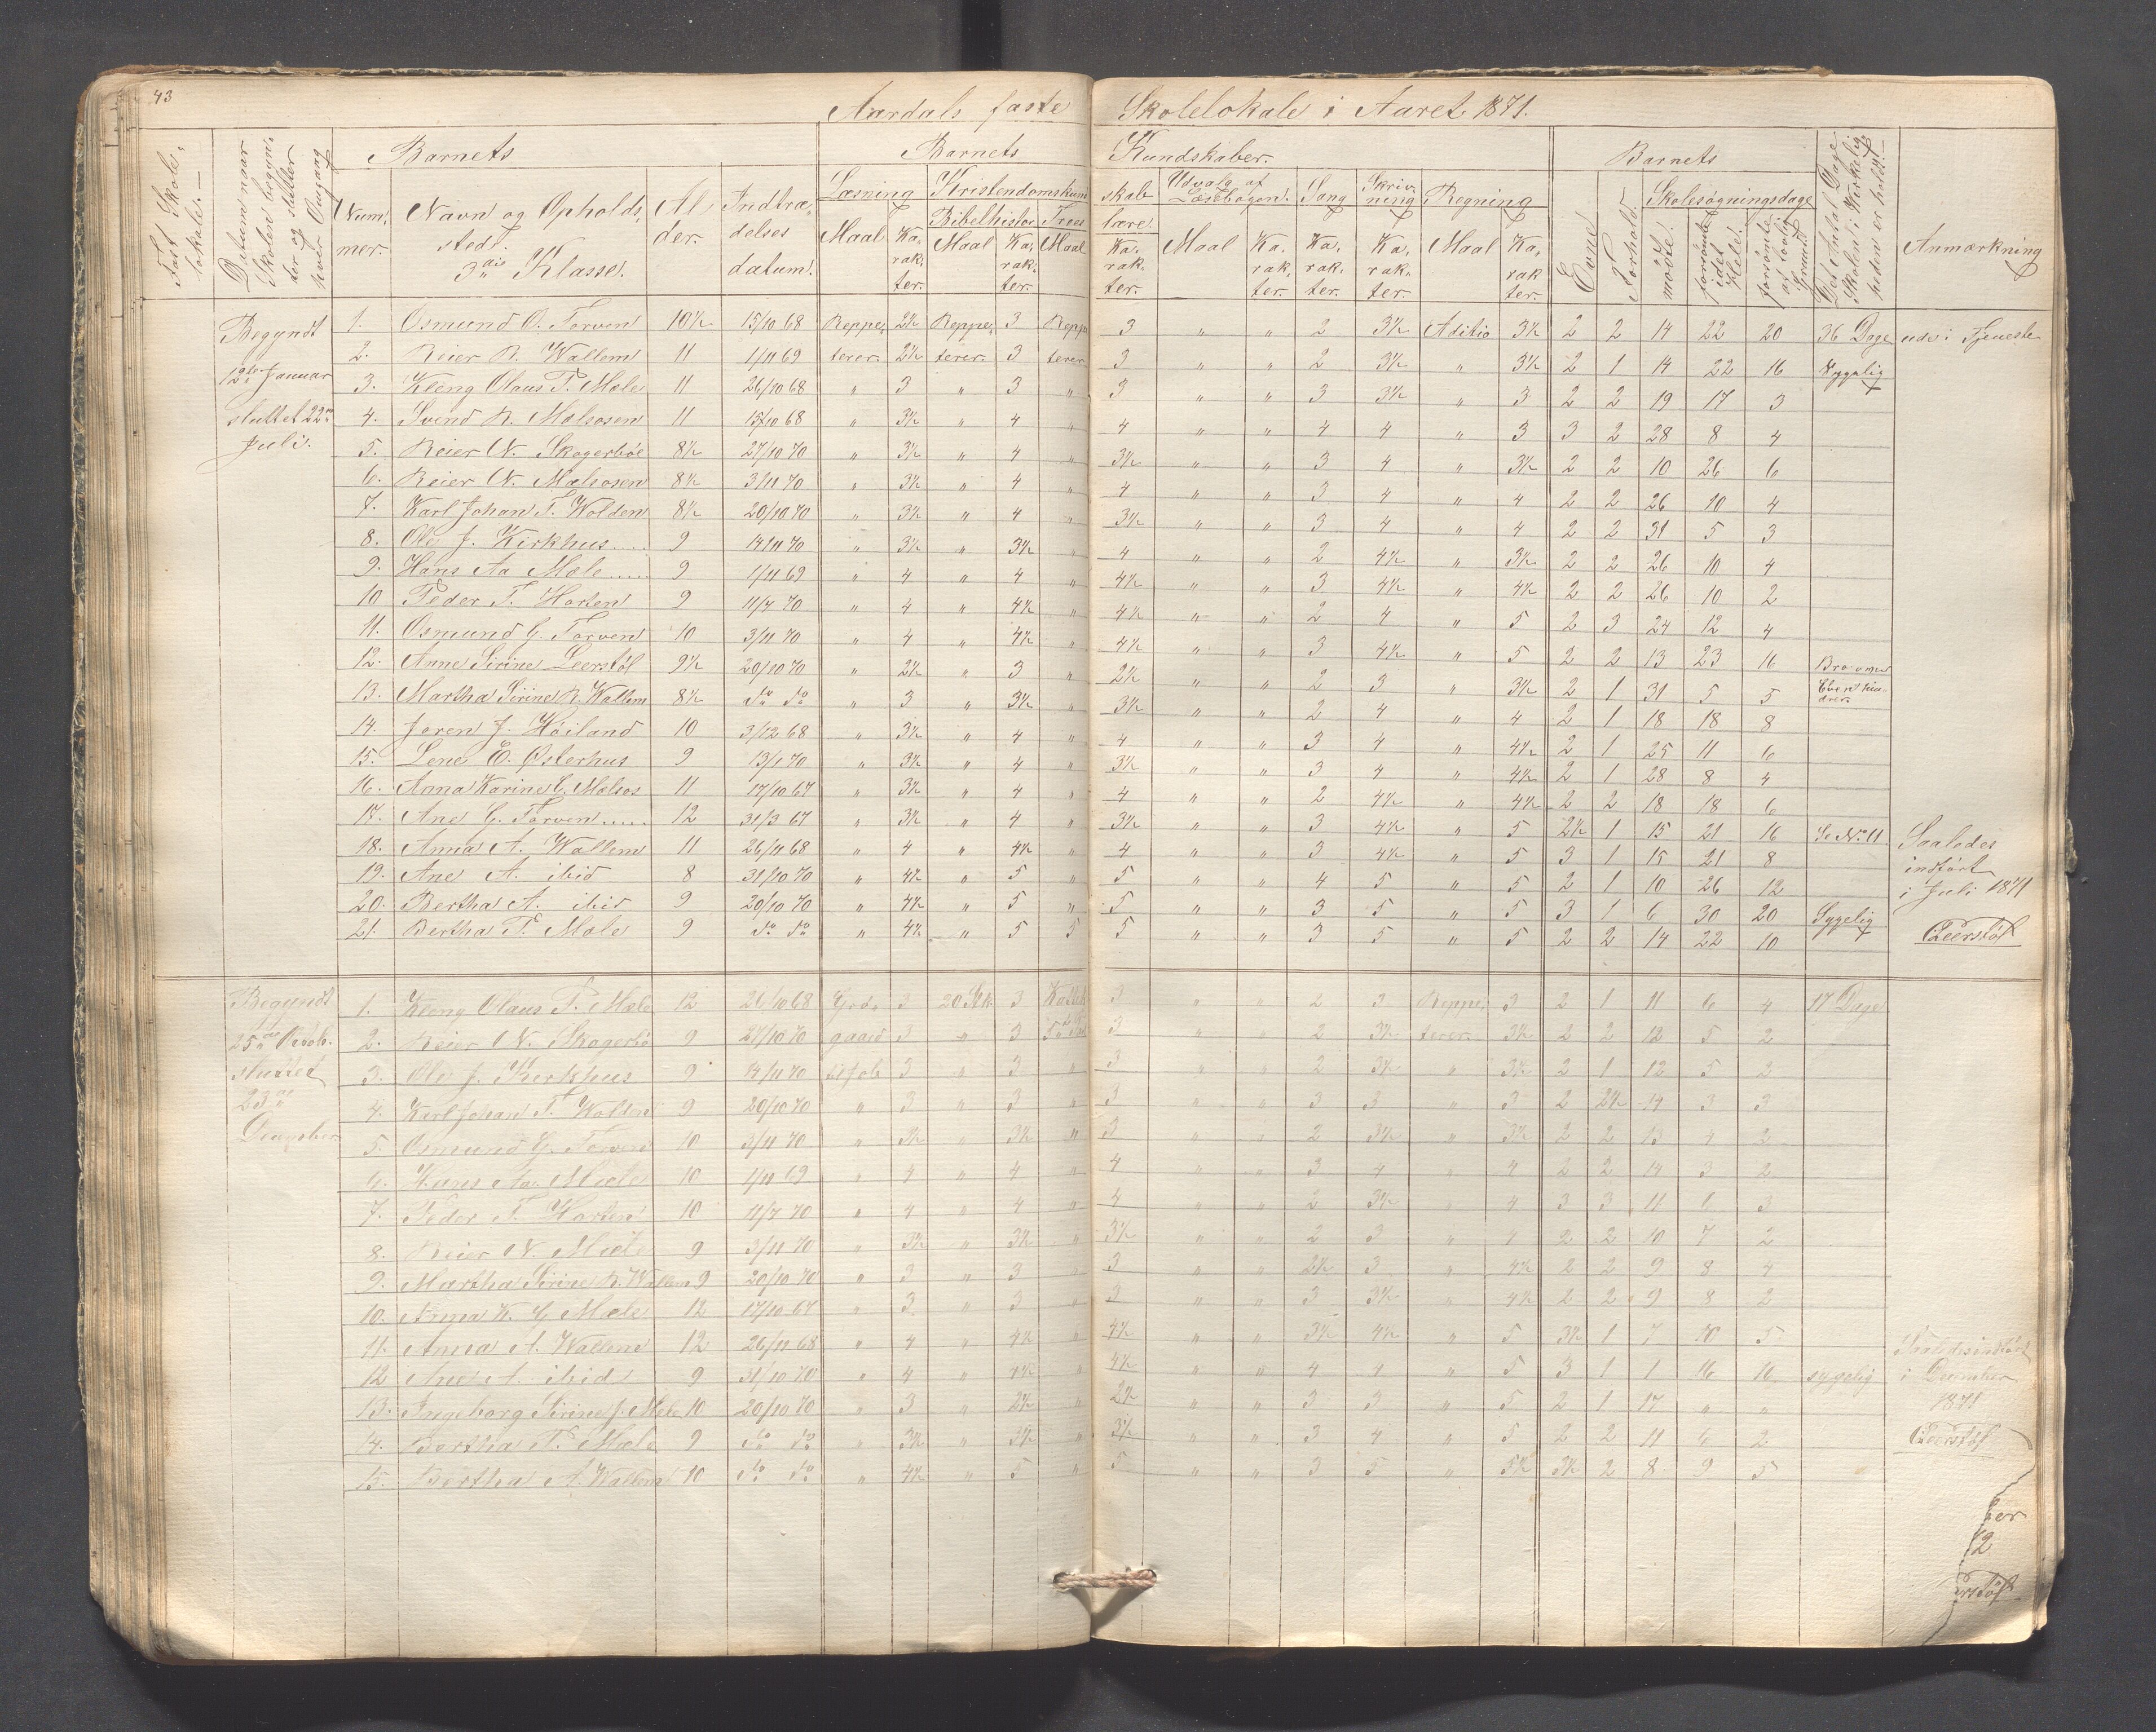 43
Aardals faste Skolelokale i Aaret 1871.
Fast Skolelokale.
Datum naar Skolen begynder og slutter hver Omgang
Barnets
Nummer.
Navn og Opholdssted.
3die Klasse.
Alder.
Indtrædelses datum.
Barnets Kundskaber.
Læsning
Maal
Karakter.
Kristendomskundskab
Bibelhistor
Maal
Karakter.
Troeslære.
Maal
Karakter.
Udvalg af Læsebogen.
Maal
Karakter.
Sang
Karakter.
Skrivning
Karakter.
Regning
Maal
Karakter.
Barnets
Evne
Forhold.
Skolesøgningsdage
mødte.
forsømte i det Hele.
forsømte af lovlig Grund.
Det Antal Dage Skolen i Virkeligheden er holdt.
Anmærkning
Begyndt
12te Januar
sluttet 22de
Juli.
1. Osmund O. Torven 10½ 15/10 68 Reppe- 2½ Reppe- 3 Reppe 3 " " 2 3½ Aditio 3½ 2 2 14 22 20 36 Dage ude i Tjeneste
2. Reier R. Wallem 11 1/11 69 terer. 2½ terer. 3 terer 3 " " 2 3½ " 3½ 2 1 14 22 16 Sygelig
3. Kleng Olaus T. Mæle 11 26/10 68 " 3 " 3 " 3 " " 3 3½ " 3 2 2 19 17 3
4. Svend R. Mælsosen 11 15/10 68 " 3½ " 4 " 4 " " 4 4 " 3 3 2 28 8 4
5. Reier N. Skogerbøe 8½ 27/10 70 " 3½ " 4 " 3½ " " 3 4 " 3½ 2 2 10 26 6
6. Reier N. Mælsosen 8½ 3/11 70 " 3½ " 4 " 4 " " 3 4 " 4 2 2 26 10 4
7. Karl Johan T. Wolden 8½ 20/10 70 " 3½ " 4 " 3½ " " 3 4 " 4 2 2 31 5 3
8. Ole J. Kirkhus..... 9 14/11 70 " 3½ " 3½ " 4 " " 2 4½ " 3½ 2 2 26 10 4
9. Hans Aa Mæle..... 9 1/11 69 " 4 " 4 " 4½ " " 3 4½ " 4½ 2 2 26 10 2
10 Peder T. Horten 9 11/7 70 " 4 " 4½ " 4½ " " 2 4 " 5 2 3 24 12 4
11. Osmund G. Torven 10 3/11 70 " 4 " 4½ " 4½ " " 3 4½ " 5 2 2 13 23 16
12. Anne Sirine Leerstøl 9½ 20/10 70 " 2½ " 3 " 2½ " " 2 3 " 3½ 2 1 31 5 5
13. Martha Sirine R. Wallem 8½ do do " 3 " 3½ " 3½ " " 2 4 " 4 2 1 18 18 8
14. Joren J. Høiland 10 3/12 68 " 3½ " 4 " 4 " " 3 4 " 4½ 2 1 25 11 6
15. Lene E. Østerhus 9 13/1 70 " 3½ " 4 " 3½ " " 3 4 " 4½ 2 1 28 8 4
16. Anna Karine G. Mælsos 11 17/10 67 " 3½ " 4 " 4 " " 2 4½ " 4½ 2 2 18 18 6
17. Ane G. Torven..... 12 31/3 67 " 3½ " 4 " 3½ " " 3 4½ " 5 2½ 1 15 21 16 Se No 11
18. Anna A. Wallem 11 26/11 68 " 4 " 4½ " 4 " " 3 4½ " 5 3 1 15 21 8
19. Ane A. ibid 8 31/10 70 " 4½ " 5 " 5 " " 4 5 " 5 2 1 10 26 12
20. Bertha A. ibid 9 20/10 70 " 4½ " 5 " 5 " " 3 5 " 5 3 1 6 30 20 Sygelig
21. Bertha T. Mæle 9 do do " 4½ " 5 5 5 " " 3 5 " 5 2 2 14 22 10
Saaledes
indført
i Juli 1871
Leerstøl
Begyndt
25de Octob.
sluttet
23de
December
1. Kleng Olaus T. Mæle 12 26/10 68 Grø- 3 20 Stk 3 3 " " 2 3 Reppe- 3 2 1 11 6 4 17 Dage
2. Reier N. Skogerbø 9 27/10 70 gaard 3 " 3 3 " " 2 3½ terer. 3½ 2 2 12 5 2
3. Ole J. Kirkhus 9 14/11 70 3 " 3 " 3 " " 2 3½ " 3½ 2 1 12 5 2
4. Karl Johan T. Wolden 9 20/10 70 " 3 " 3 " 3 " " 3 3 " 3 2 2½ 14 3 3
5. Osmund G. Torven 10 3/11 70 " 3½ " 3½ " 3 " " 2 3½ " 3½ 2 2 13 4 2
6. Hans Aa. Mæle 10 1/11 69 " 4 " 4 " 4 " " 3 4 " 4 2 2 14 3 2
7. Peder T. Horten 10 11/7 70 " 4 " 4 " 4 " " 2 3½ " 4 3 3 11 6 3
8. Reier N. Mæle 9 3/11 70 " 3½ " 3½ " 3½ " " 2 3 " 4 2 2 10 7 2
9. Martha Sirine R. Wallem 9 20/10 70 " 3 " 3 " 3 " " 2½ 3 " 4½ 2 2 9 8 4
10. Anna K. G. Mæle 12 17/10 67 " 3 " 3 " 3 " " 3 3½ " 4½ 2 2 9 8 2
11. Anna A. Wallem 12 26/11 68 " 4 " 4½ " 4½ " " 3½ 4½ " 5 3½ 1 7 10 5
12 Ane A. ibid 9 31/10 70 " 4 " 4½ " 4½ " " 4 4 " 5 3 1 1 16 16 sygelig
13. Ingeborg Sirine J. Mæle 10 20/10 70 " 3 " 2½ " 2½ " " 3 3 " 5 2 1 17 " "
14. Bertha T. Mæle 9 do do " 3½ " 3½ " 3½ " " 3 4 " 5 2 2 11 6 2
15. Bertha A. Wallem 10 do do " 4½ " 5 " 5 " " 3 5 " 5½ 3½ 2 8 9 5
Saaledes indført
i December
1871
Leerstøl
ber
72
erstøl